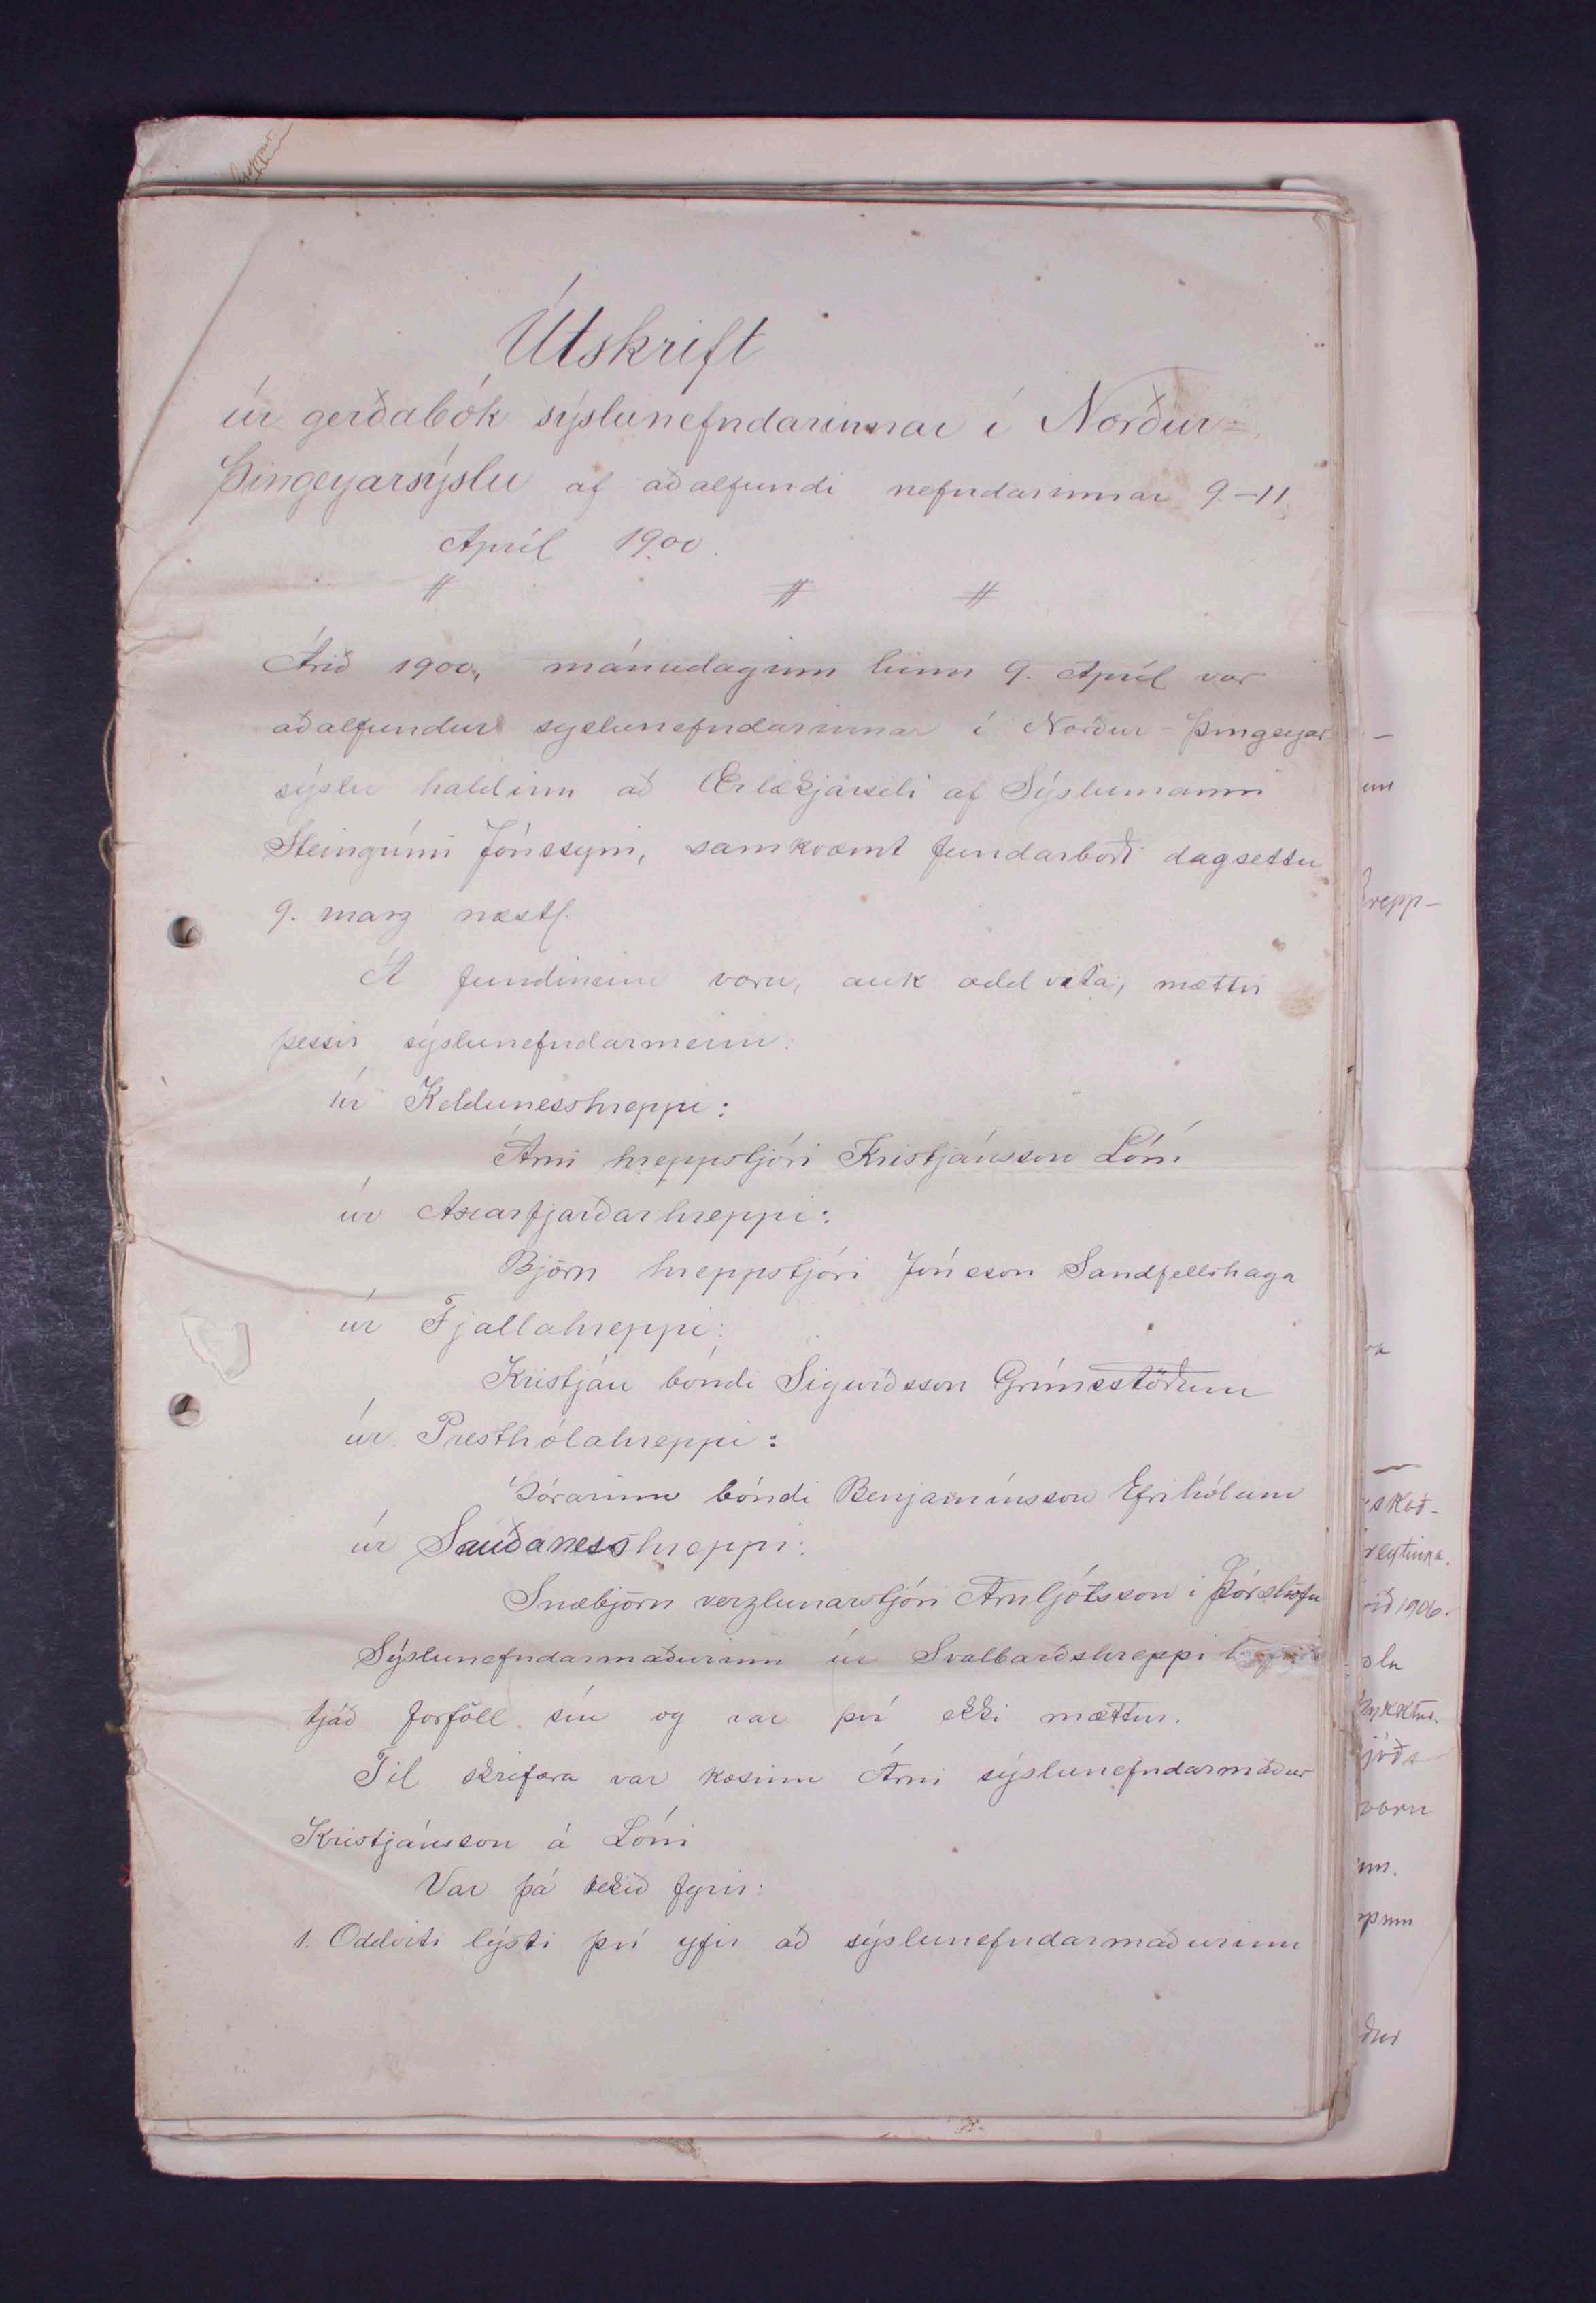 Útskrift
úr gerðabók sýslunefndarinnar í Norður=
Þingeyarsýslu af aðalfundi nefndarinnar 9.-11.
Apríl 1900.
Árið 1900, mánudaginn hinn 9. Apríl var
aðalfundur syslunefndarinnar í Norður=Þingeyar
sýslu haldinn að Ærlækjarseli af Sýslumanni
Steingrími Jónssyni, samkvæmt fundarboði dagsettu
9. marz næstl.
Á fundinum voru, auk oddvita, mættir
þessir sýslunefndarmenn:
úr Keldunesshreppi:
Árni hreppstjóri Kristjánsson Lóni
úr Axarfjarðarhreppi:
Björn hreppstjóri Jónsson Sandfellshaga
úr Fjallahreppi:
Kristján bóndi Sigurðsson Grímsstöðum
úr Presthólahreppi:
Þórarinn bóndi Benjamínsson Efrihólum
úr Sauðanesshreppi:
Snæbjörn verzlunarstjóri Arnljótsson í Þórshöfn
Sýslunefndarmaðurinn úr Svalbarðshreppi
tjáð forföll sín og var því ekki mættur.
Til skrifara var kosinn Árni sýslunefndarmaður
Kristjánsson á Lóni
Var þá tekið fyrir:
1. Oddviti lýsti því yfir að sýslunefndarmaðurinn
un
hrepp-
skoð-
1906.
sla
voru
um.